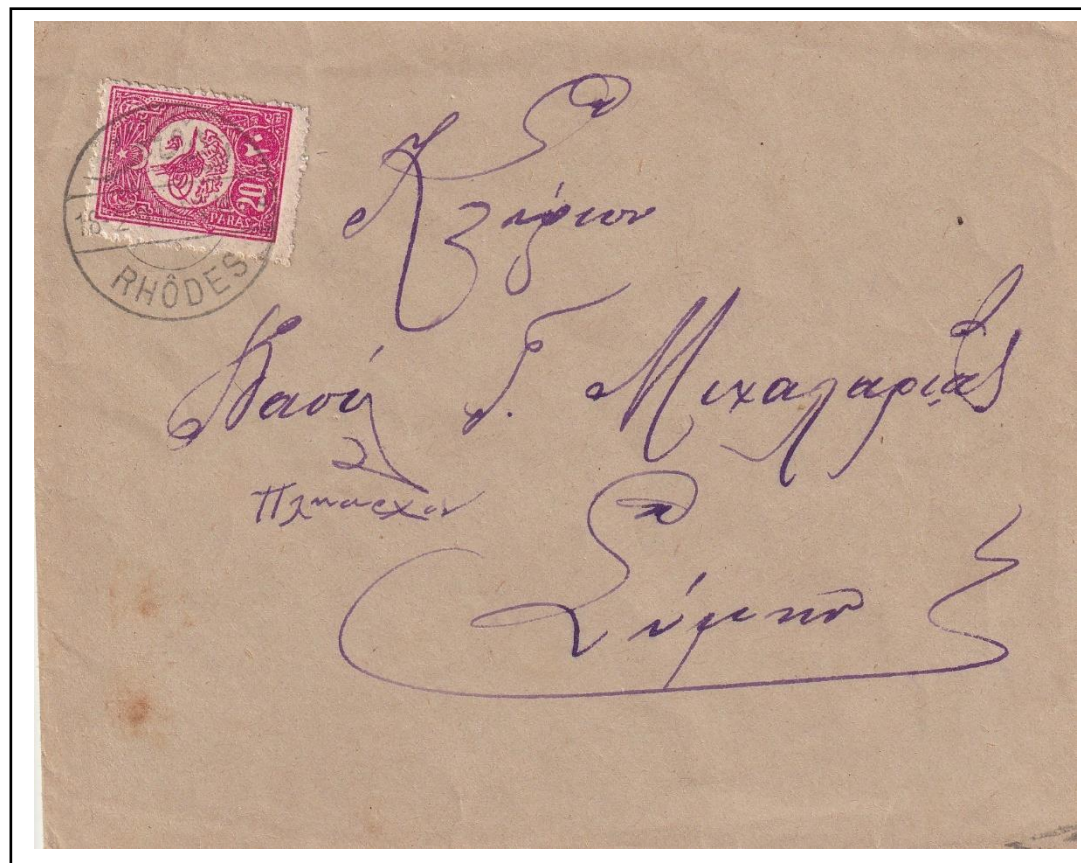 ٢٠ 20
PARAS
18 2
RHÔDES
Κύριον
Βασίλ Γ. Μιχαλαριάς
Πλοίαρχον
Σύμην